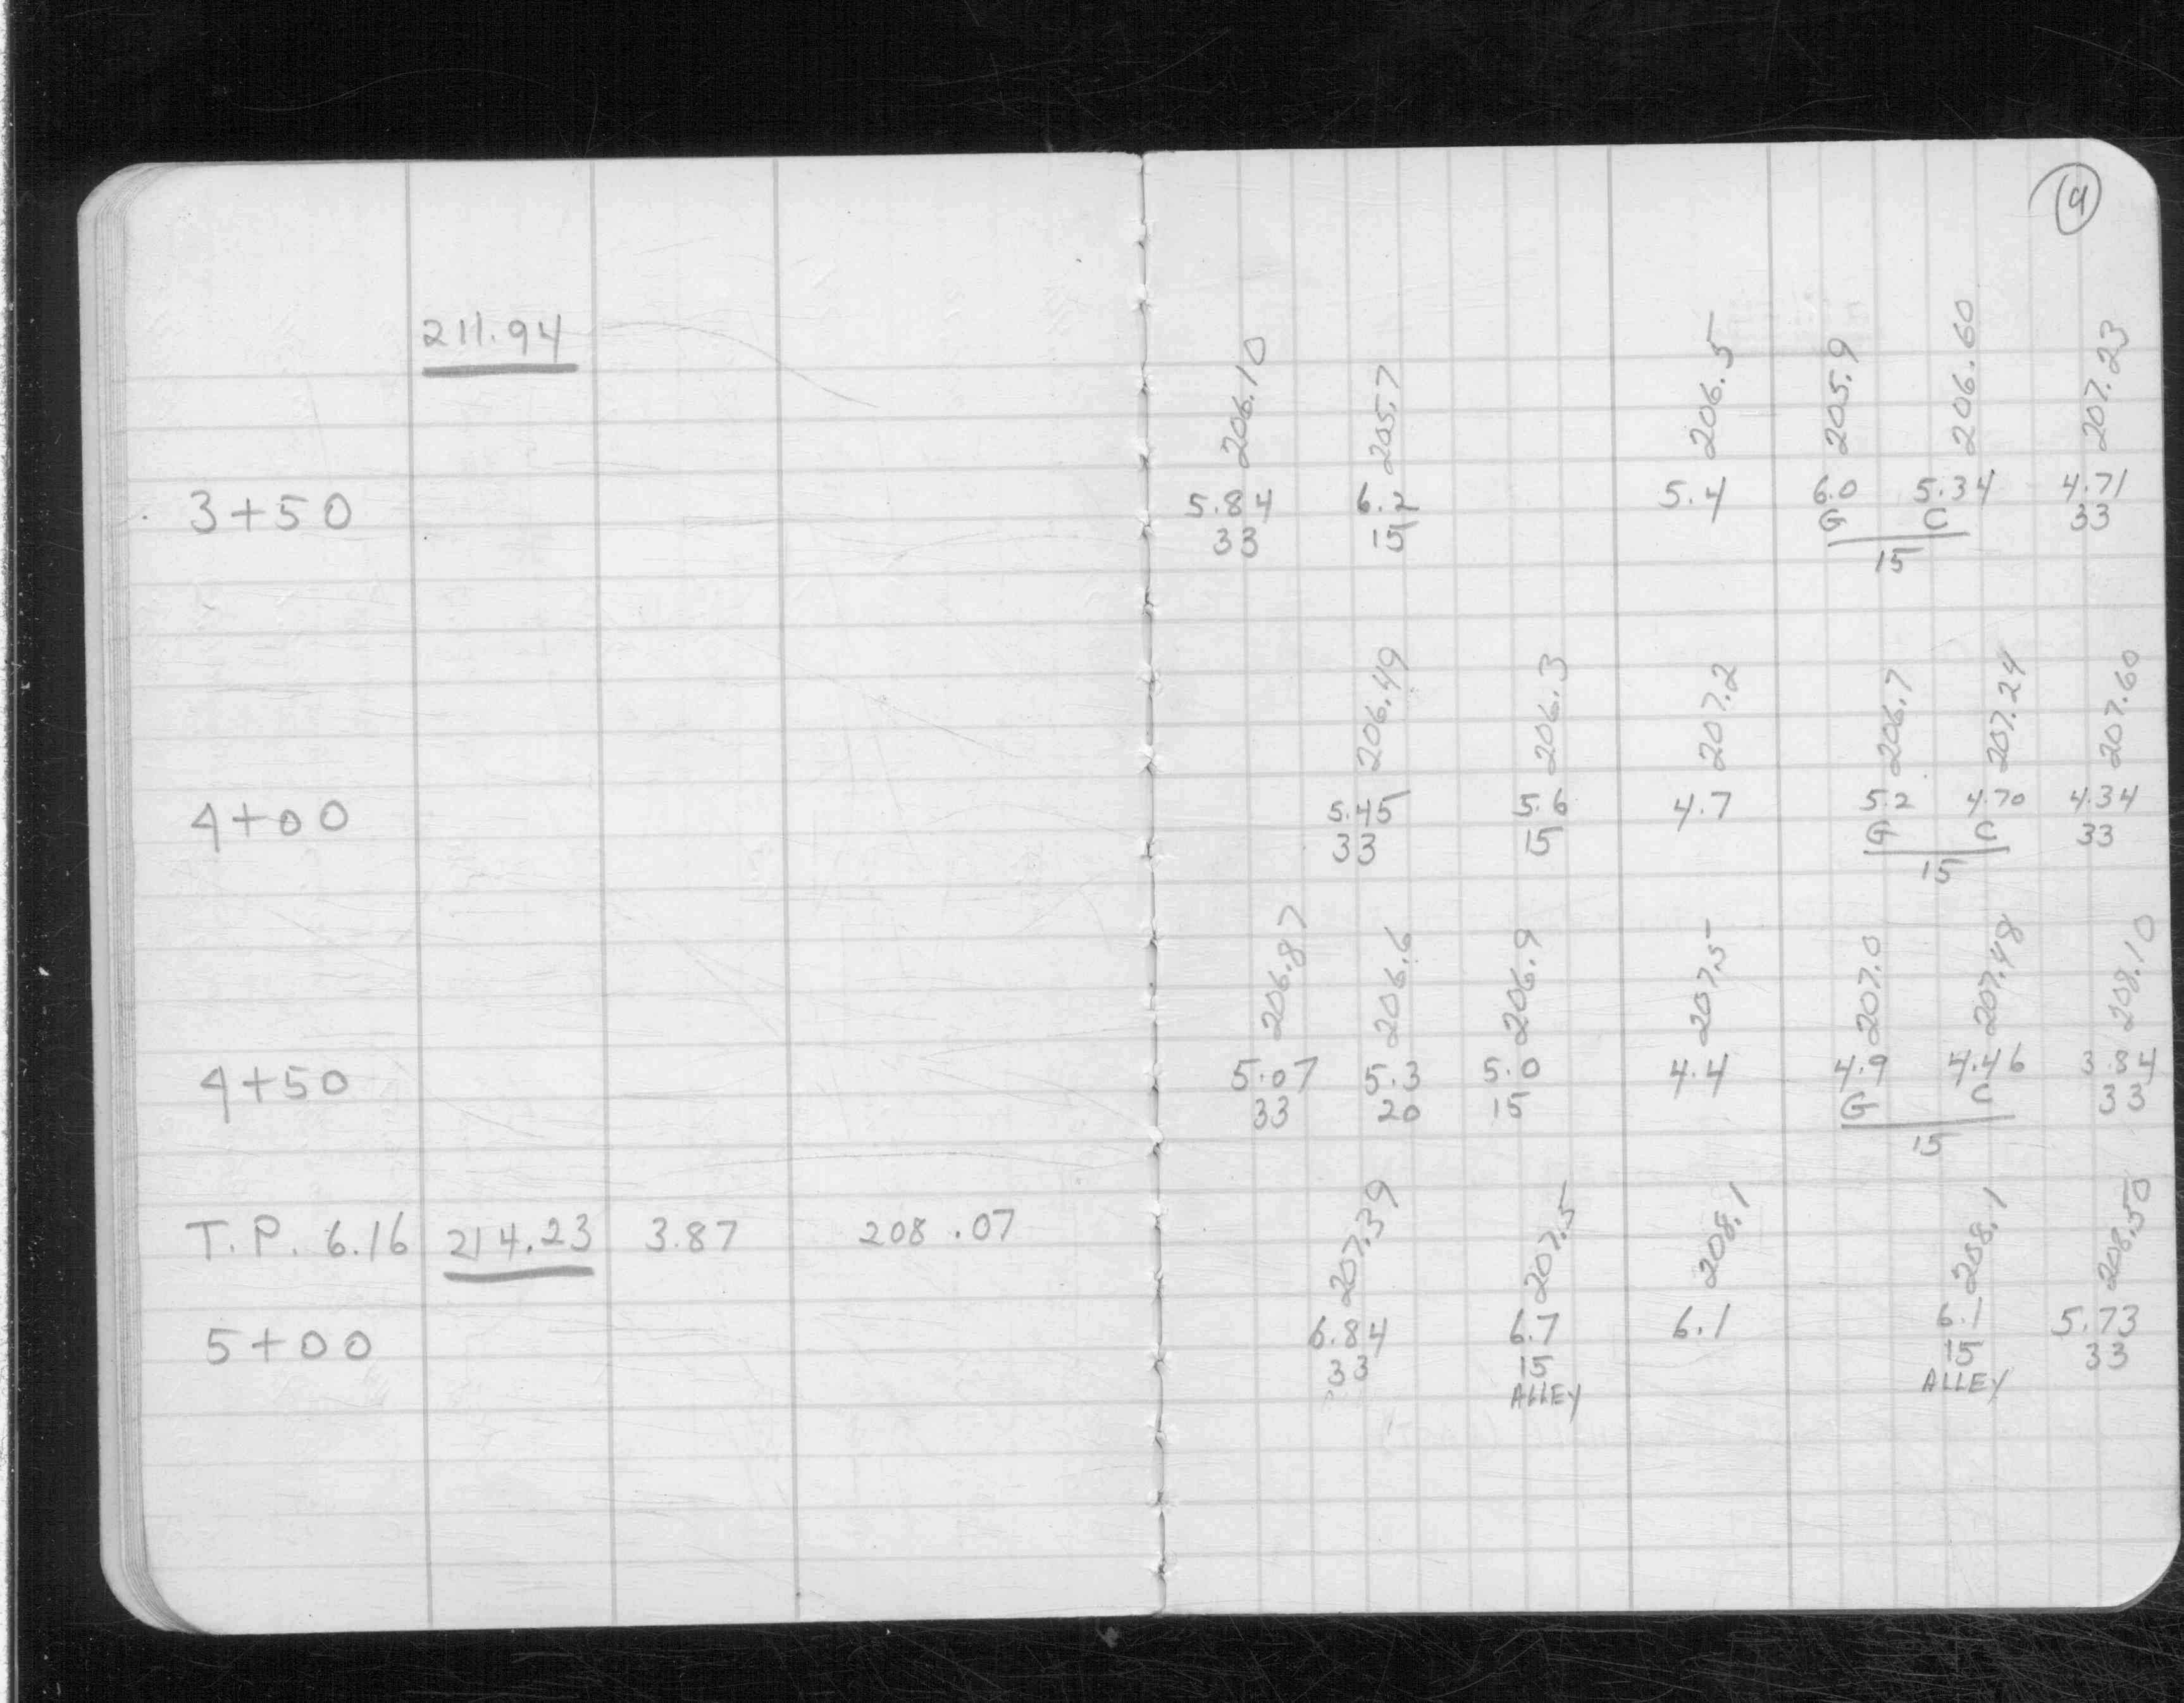 4
211.94
206.10 205.7 206.5 205.9 206.60 207.23
3+50 5.84 6.2 5.4 6.0 5.34 4.71
33 15 G C 33
15
206.49 206.3 207.2 206.7 207.24 207.60
4+00 5.45 5.6 4.7 5.2 4.70 4.34
33 15 G C 33
15
206.87 206.6 206.9 207.5 207.0 207.48 208.10
4+50 5.07 5.3 5.0 4.4 4.9 4.46 3.84
33 20 15 G C 33
15
T.P. 6.16 214.23 3.87 208.07
207.39 207.5 208.1 208.1 208.50
5+00 6.84 6.7 6.1 6.1 5.73
33 15 15 33
ALLEY ALLEY